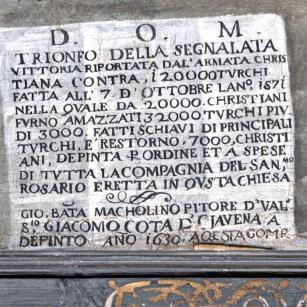 D. O. M.
TRIONFO DELLA SEGNALATA
VITTORIA RIPORTATA DAL'ARMATA CHRIS
TIANA CONTRA, 120000 TVRCHI
FATTA ALL'7. D'OTTOBRE LAN°. 1571
NELLA QVALE DA 20000. CHRISTIANI
FVRNO AMAZZATI 32000 TVRCHI PIV
DI 3000, FATTI SCHIAVI DI PRINCIPALI
TVRCHI, E' RESTORNO, 7000, CHRISTI
ANI, DEPINTA P ORDINE ET A SPESE
DI TVTTA LA COMPAGNIA DEL SANMO
ROSARIO ERETTA IN QVSTA CHIESA
GIO, BATA MACHOLINO PITORE D'VAL'
S.IO GIACOMO COTA D' CJAVENA A
DEPINTO ANO 1630, AQESTA COMP.